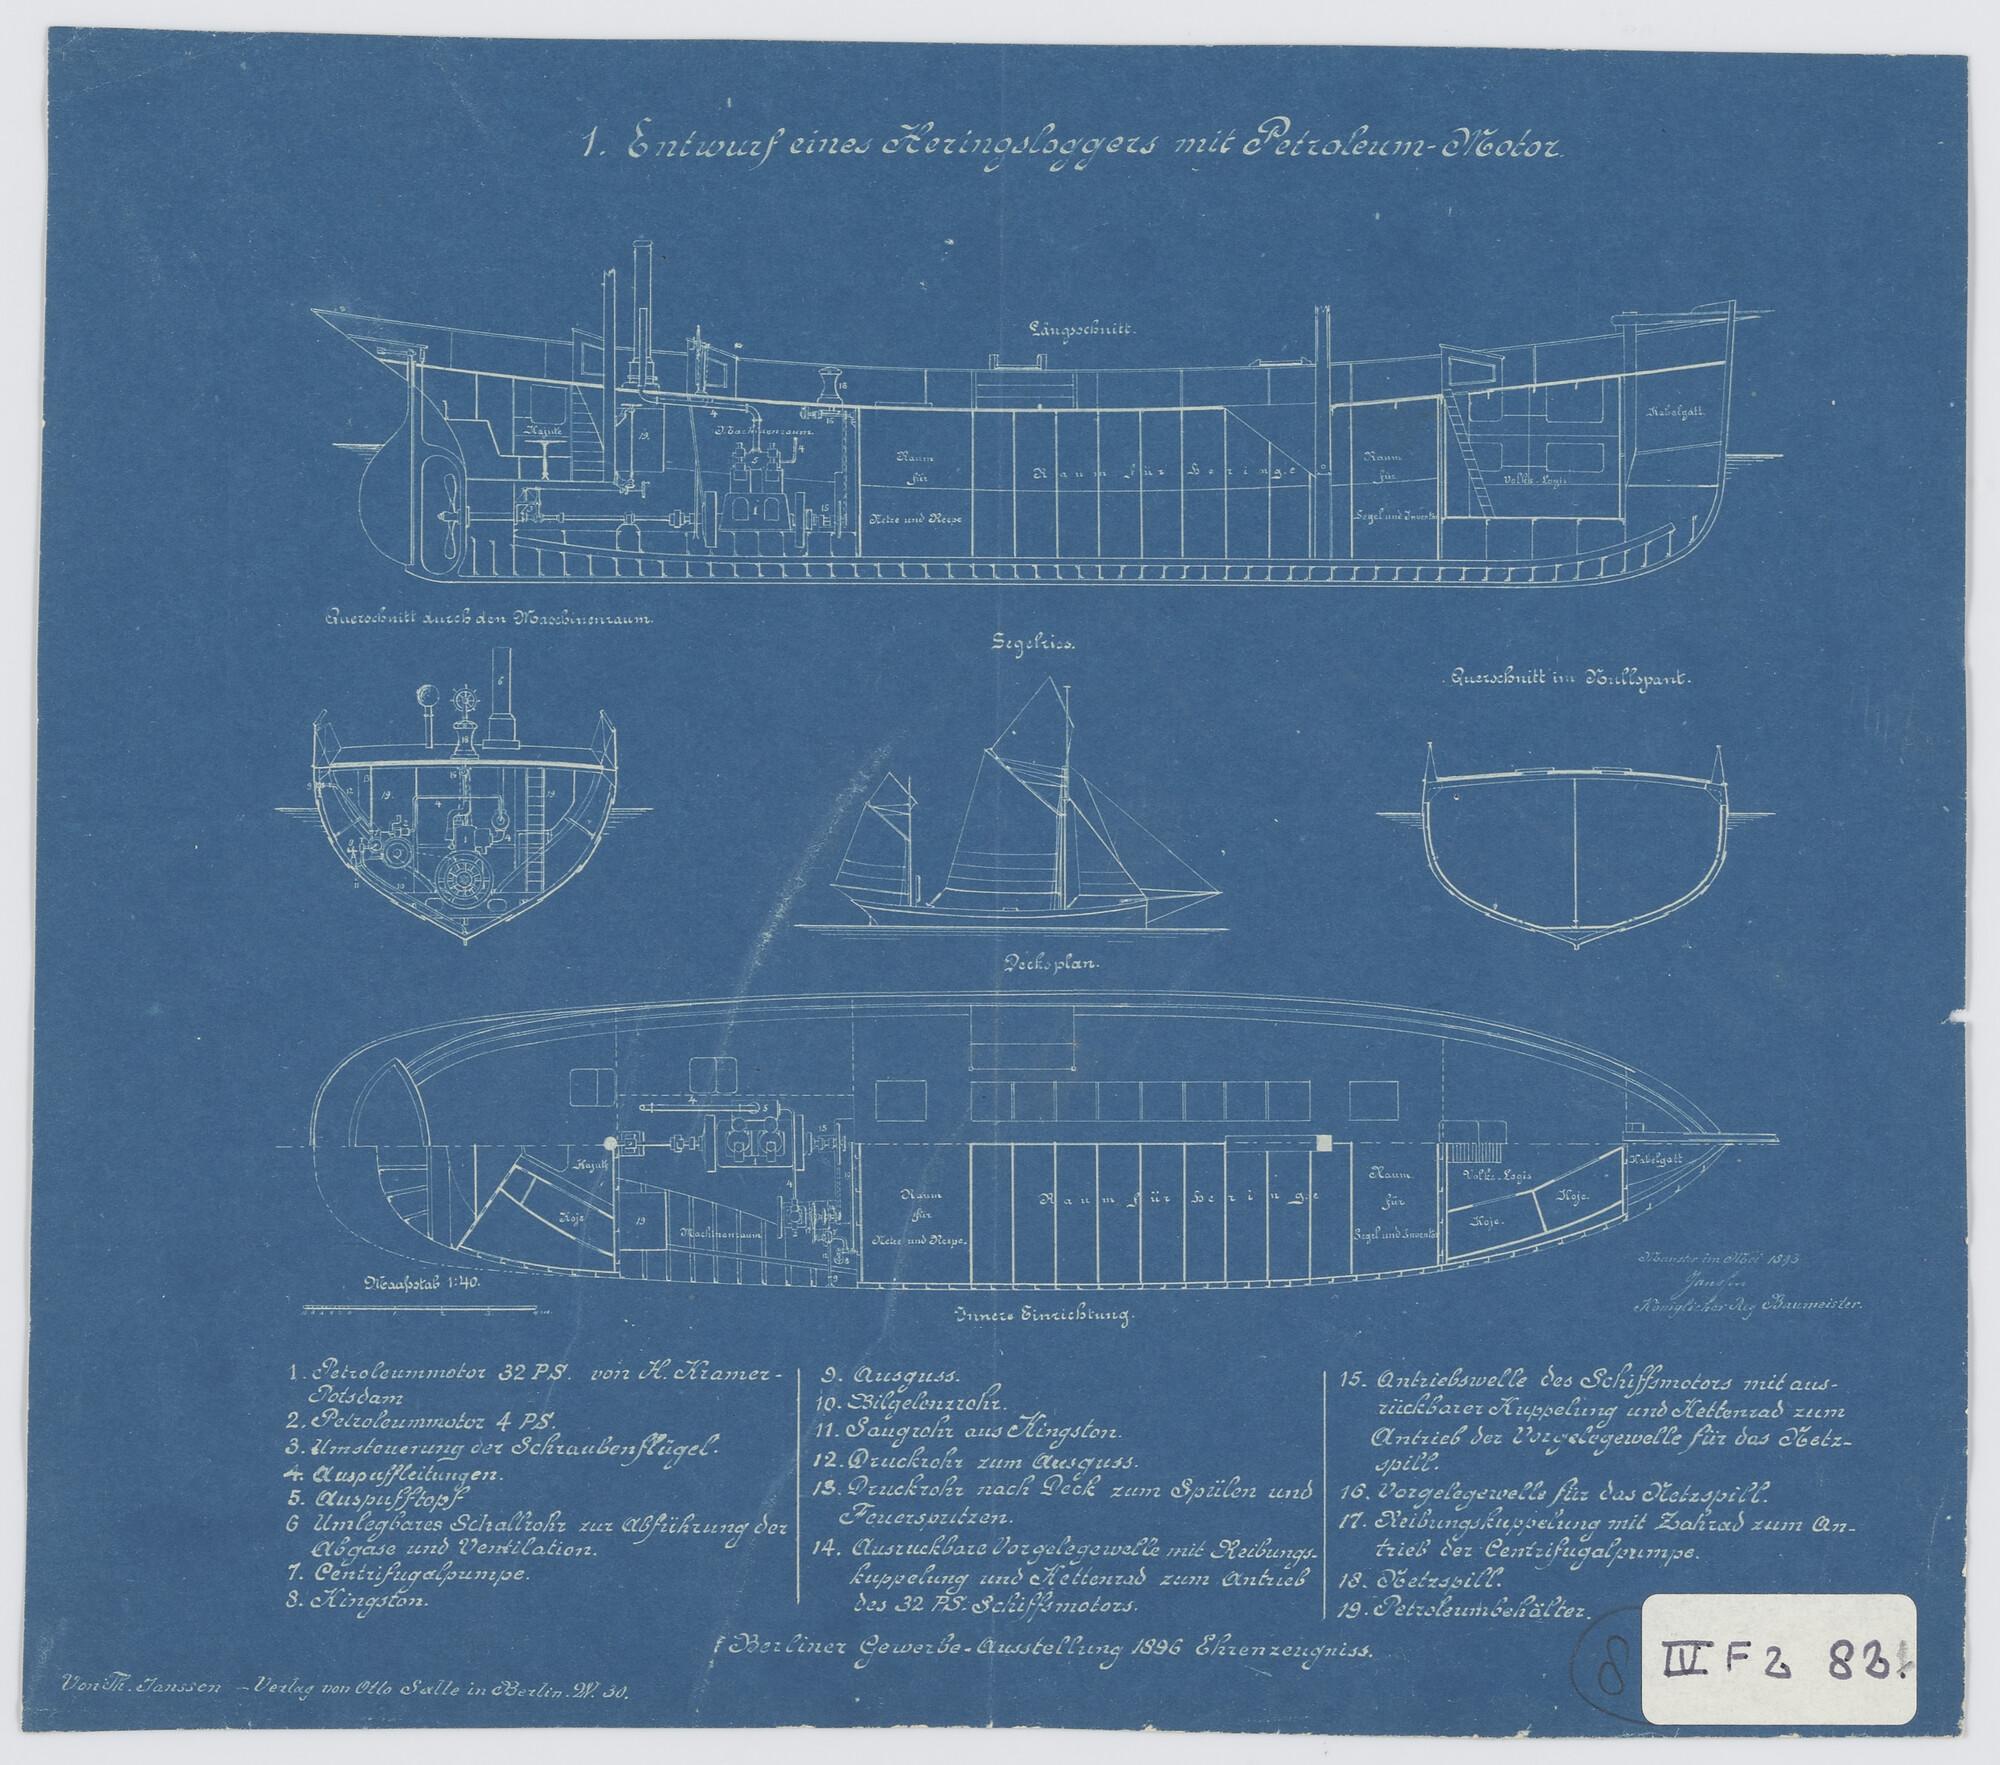 1. Entwurf eines Heringsloggers mit Petroleum-Motor.
Längsschnitt.
Kajüte
19.
4
Maschinenraum.
4
5
1
15
16
18
Raum
für
Netze und Reepe
Raum für Heringe
Raum
für
Segel und Inventar
Volks-Logis
Kabelgatt.
Querschnitt durch den Maschinenraum.
Segelriss.
Querschnitt im Nullspant.
6
18
9
12
13
19.
4
16
19
4
11
10
Decksplan.
4
5
15
1
4
Kajüte
Koje
19
Maschinenraum
Raum
für
Netze und Reepe.
Raum für Heringe
Raum
für
Segel und Inventar
Volks-Logis
Koje.
Koje.
Kabelgatt
Maaßstab 1:40.
Innere Einrichtung.
im Mai 1893
Königlicher Reg Baumeister.
1. Petroleummotor 32 PS. von H. Kramer-
Potsdam
2. Petroleummotor 4 PS.
3. Umsteuerung der Schraubenflügel.
4. Auspuffleitungen.
5. Auspufftopf
6 Umlegbares Schallrohr zur Abführung der
Abgase und Ventilation.
7. Centrifugalpumpe.
8. Kingston.
9. Ausguss.
10. Bilgelenzrohr.
11. Saugrohr aus Kingston.
12. Druckrohr zum Ausguss.
13. Druckrohr nach Deck zum Spülen und
Feuerspritzen.
14. Ausrückbare Vorgelegewelle mit Reibungs-
kuppelung und Kettenrad zum Antrieb
des 32 PS. Schiffsmotors.
15. Antriebswelle des Schiffsmotors mit aus-
rückbarer Kuppelung und Kettenrad zum
Antrieb der Vorgelegewelle für das Netz-
spill.
16. Vorgelegewelle für das Netzspill.
17. Reibungskuppelung mit Zahrad zum An-
trieb der Centrifugalpumpe.
18. Netzspill.
19. Petroleumbehälter.
Berliner Gewerbe-Ausstellung 1896 Ehrenzeugniss.
Von Th. Janssen - Verlag von Otto Salle in Berlin. W. 30.
8
IV F 2 82.